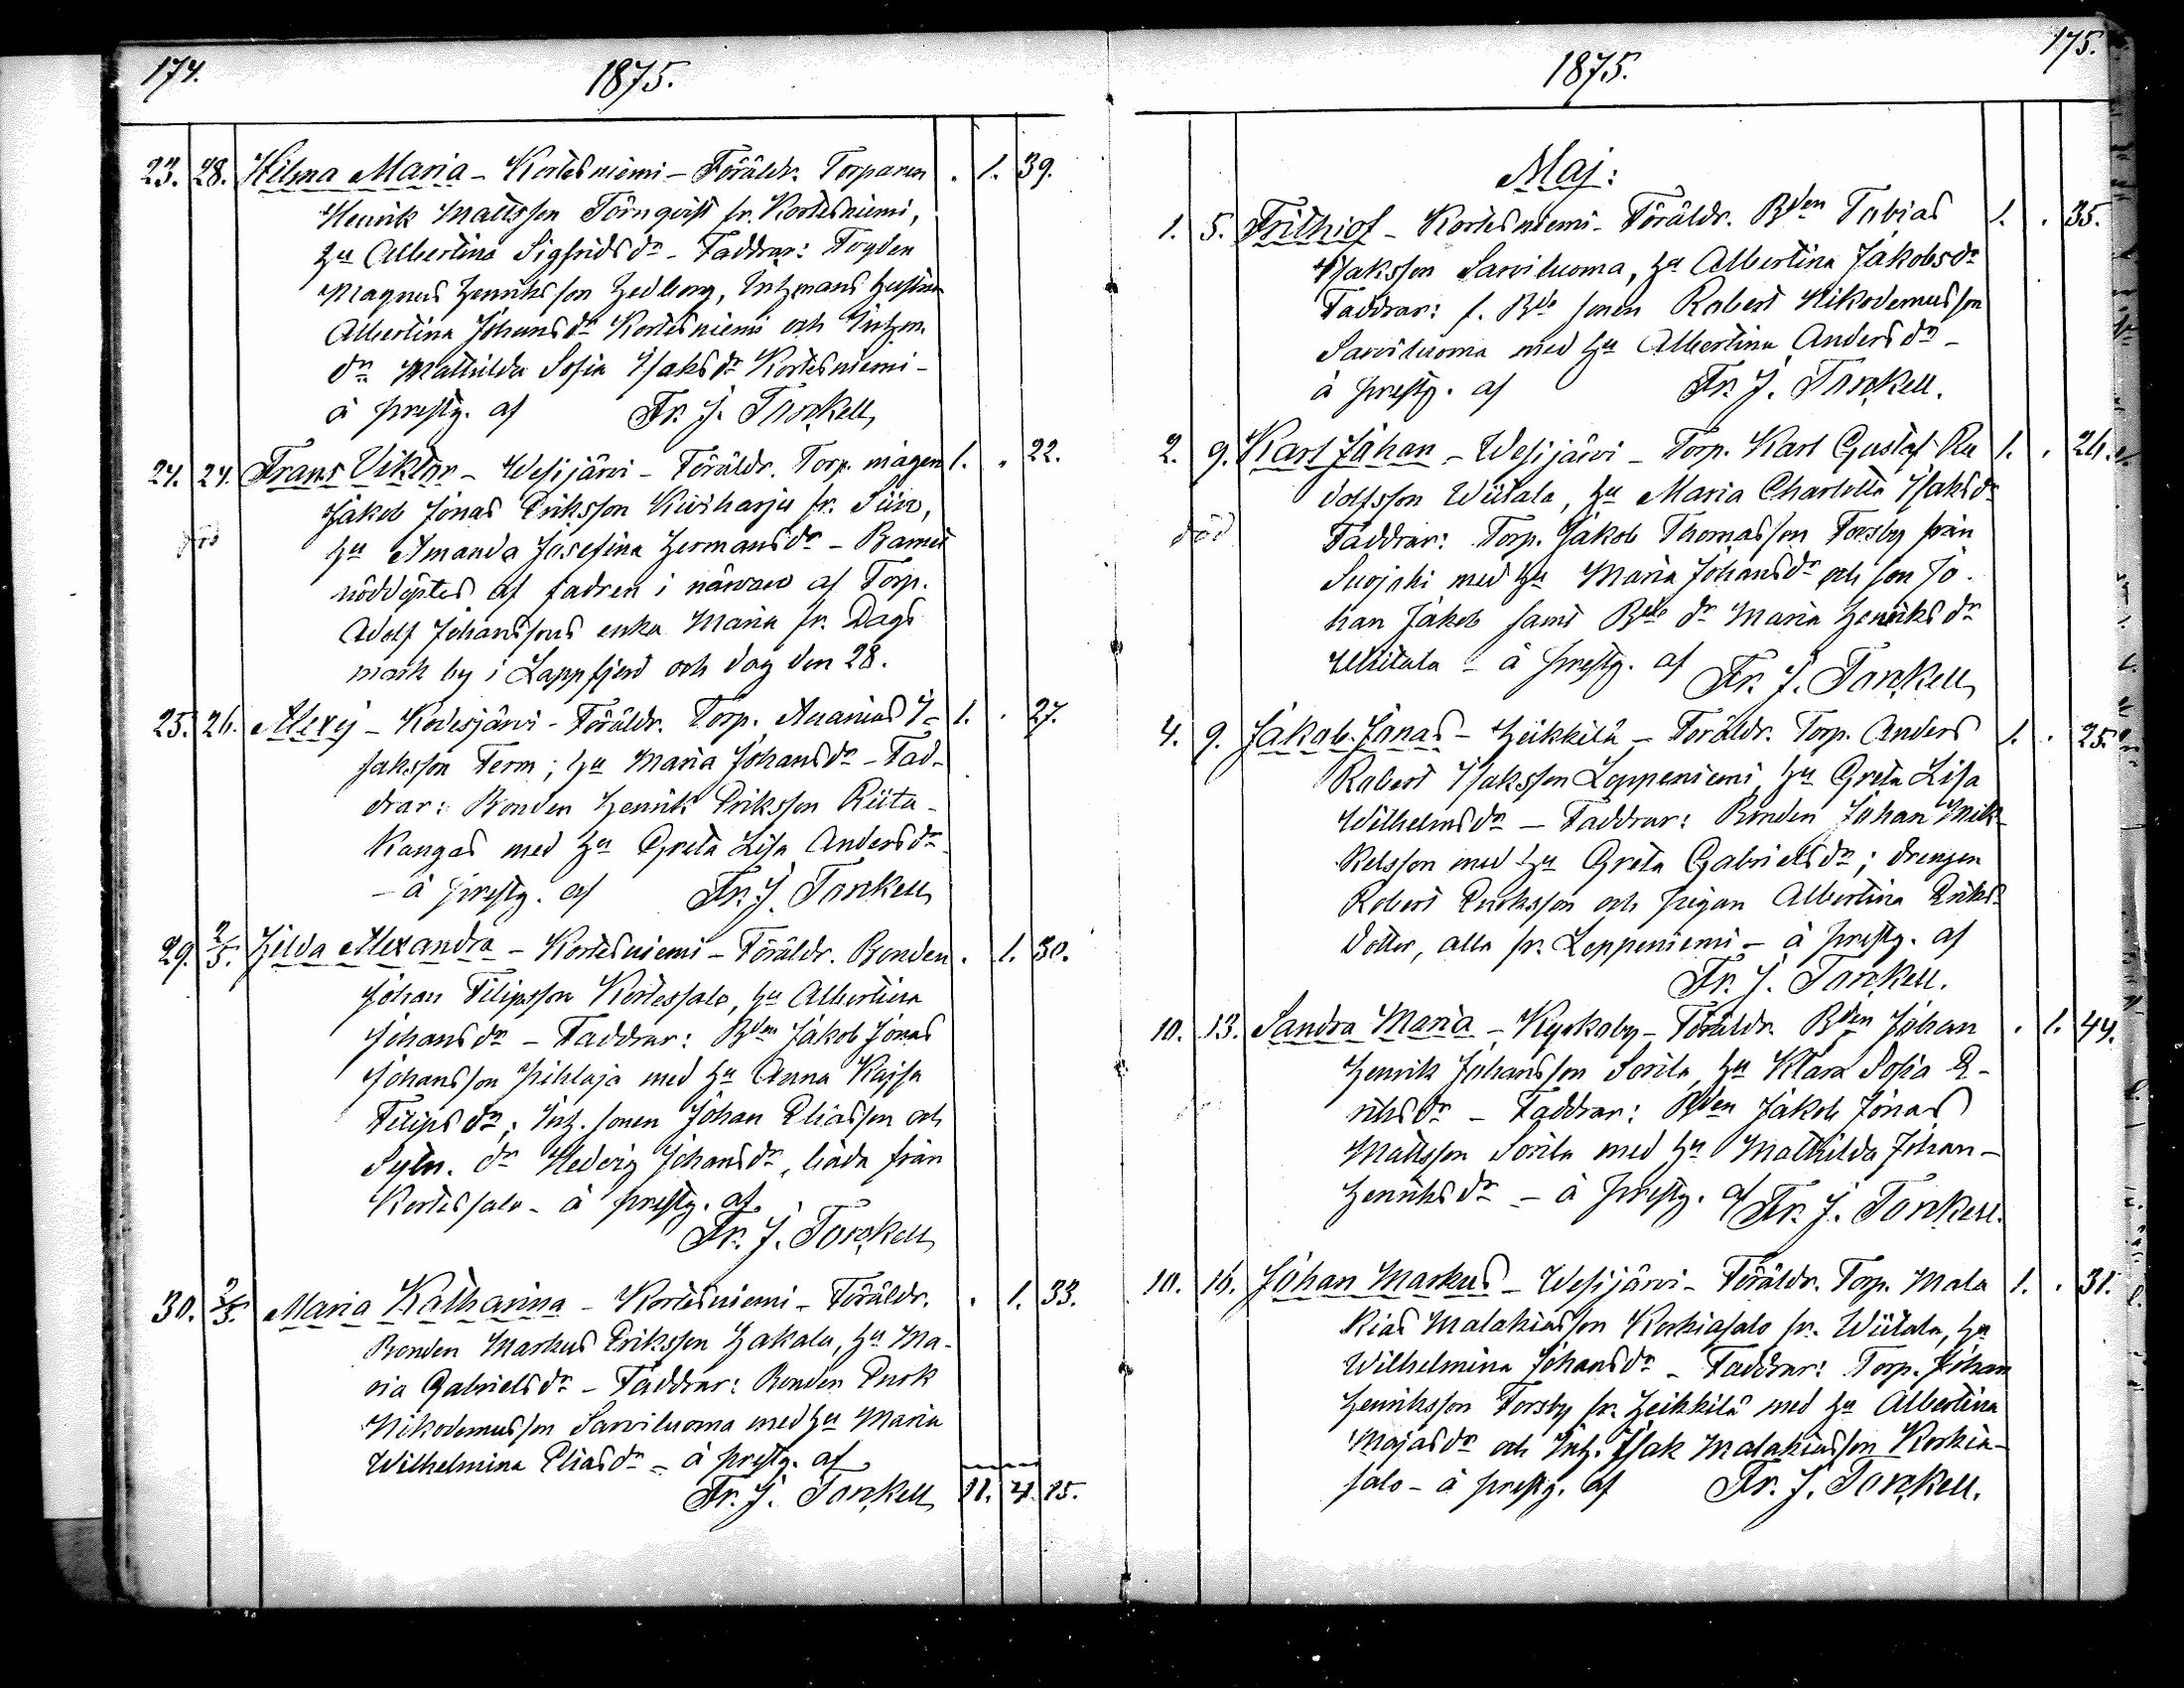 174.
1875.
23. 28. Hilma Maria - Kortesniemi - Föräldr. Torparen . 1. 39.
Henrik Mattsson Törnqvist fr. Kortesniemi,
hu Albertina Sigfridsdr - Faddrar: Fogden
Magnus Henriksson Hedberg, Inhysmans hustru
Albertina Johansdr Kortesniemi och Inhysm.
dr Mathilda Sofia Isaksdr Kortesniemi -
å prestg. af Fr. J. Torckell
24. 24. Frans Viktor - Wesijärvi - Föräldr. Torp. mågen 1. . 22.
Jakob Jonas Eriksson Kiviharju fr.
hu Amanda Josefina Hermansdr - Barnet
nöddöptes af fadren i närvaro af Torp.
Adolf Johanssons enka Maria fr. Dags
mark by i Lappfjerd och dag den 28.
25. 26. Alexej - Kodesjärvi - Föräldr. Torp. Ananias I- 1. . 27.
saksson Term; hu Maria Johansdr - Fad-
drar: Bonden Henrik Eriksson Riita-
kangas med hu Greta Lisa Andersdr
- å prestg. af Fr. J. Torckell
29. 2/5. Hilda Alexandra - Kortesniemi - Föräldr. Bonden . 1. 30.
Johan Filipsson Kortessalo, hu Albertina
Johansdr - Faddrar: Bden Jakob Jonas
Johansson Pihlaja med hu Anna Kajsa
Filipsdr; Inh. sonen Johan Eliasson och
Sytn. dr Hedvig Johansdr, båda från
Kortessalo - å prestg. af
Fr. J. Torckell
30. 2/5. Maria Katharina - Kortesniemi - Föräldr. . 1. 33.
Bonden Markus Eriksson Hakala, hu Ma-
ria Gabrielsdr - Faddrar: Bonden Enok
Nikodemusson Sarviluoma med hu Maria
Wilhelmina Eliasdr - å prestg. af
Fr. J. Torckell 11. 4. 15.
175.
1875.
Maj:
1. 5. Frithiof - Kortesniemi - Föräldr. Bden Tobias 1. . 35.
Isaksson Sarviluoma, hu Albertina Jakobsdr
Faddrar: f. Bde sonen Robert Nikodemusson
Sarviluoma med hu Albertina Andersdr -
å prestg. af Fr. J. Torckell.
2. 9. Karl Johan - Wesijärvi - Torp. Karl Gustaf Ru 1. . 26.
dolfsson Wiitala, hu Maria Charlotta Isaksdr
död Faddrar: Torp. Jakob Thomasson Forsby från
Suojoki med hu Maria Johansdr och son Jo-
han Jakob samt Bde dr Maria Henriksdr
Wiitala - å prestg. af Fr. J. Torckell
4. 9. Jakob Jonas - Heikkilä - Föräldr. Torp. Anders 1. . 25.
Robert Isaksson Leppeniemi, hu Greta Lisa
Wilhelmsdr - Faddrar: Bonden Johan Mik-
kelsson med hu Greta Gabrielsdr; drengen
Robert Enoksson och pigan Albertina Eriks-
dotter, alla fr. Leppeniemi - å prestg. af
Fr. J. Torckell.
10. 13. Sandra Maria - Kyrkoby - Föräldr. Bden Johan . 1. 44.
Henrik Johansson Sorila, hu Klara Sofia E-
riksdr - Faddrar: Bden Jakob Jonas
Mattsson Sorila med hu Mathilda Johan-
Henriksdr - å prestg. af Fr. J. Torckell.
10. 16. Johan Markus - Wesijärvi - Föräldr. Torp. Mala 1. . 31.
kias Malakiasson Korkiasalo fr. Wiitala, hu
Wilhelmina Johansdr - Faddrar: Torp. Johan
Henriksson Forsby fr. Heikkilä med hu Albertina
Majasdr och Inh. Isak Malakiasson Korkia-
salo - å prestg. af Fr. J. Torckell.